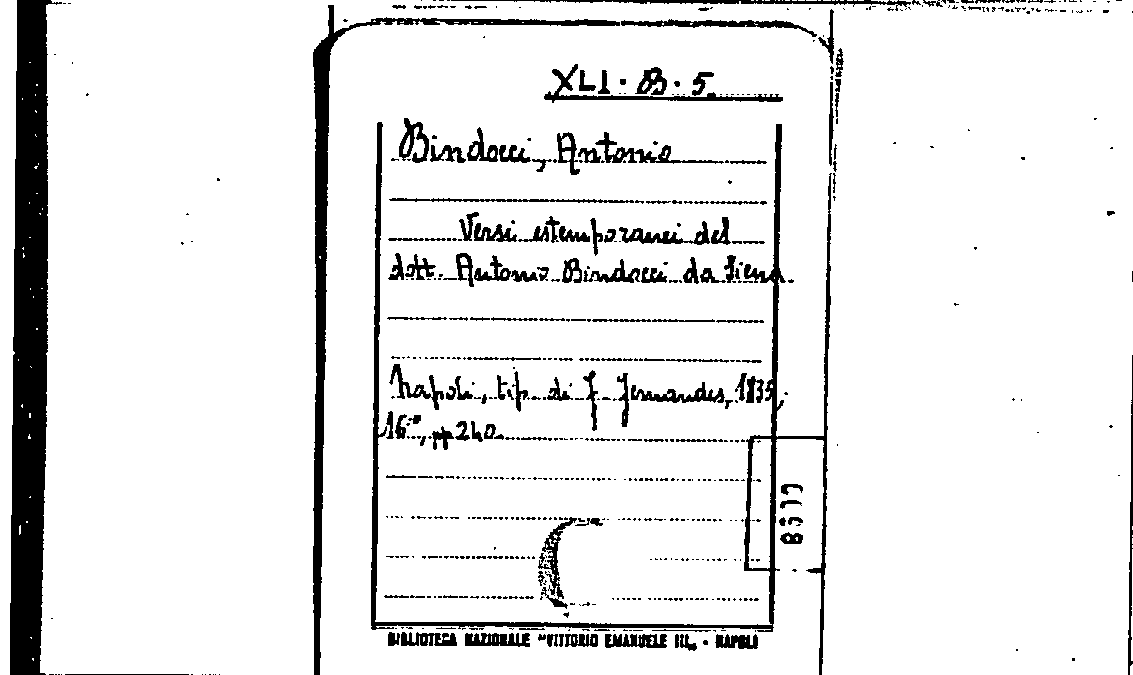 XLI. B. 5
Bindocci, Antonio
Versi estemporanei del
dott. Antonio Bindocci da Siena.
Napoli, tip. di F. Fernandes, 1835,
16°, pp 240.
BIBLIOTECA NAZIONALE "VITTORIO EMANUELE III„ - NAPOLI